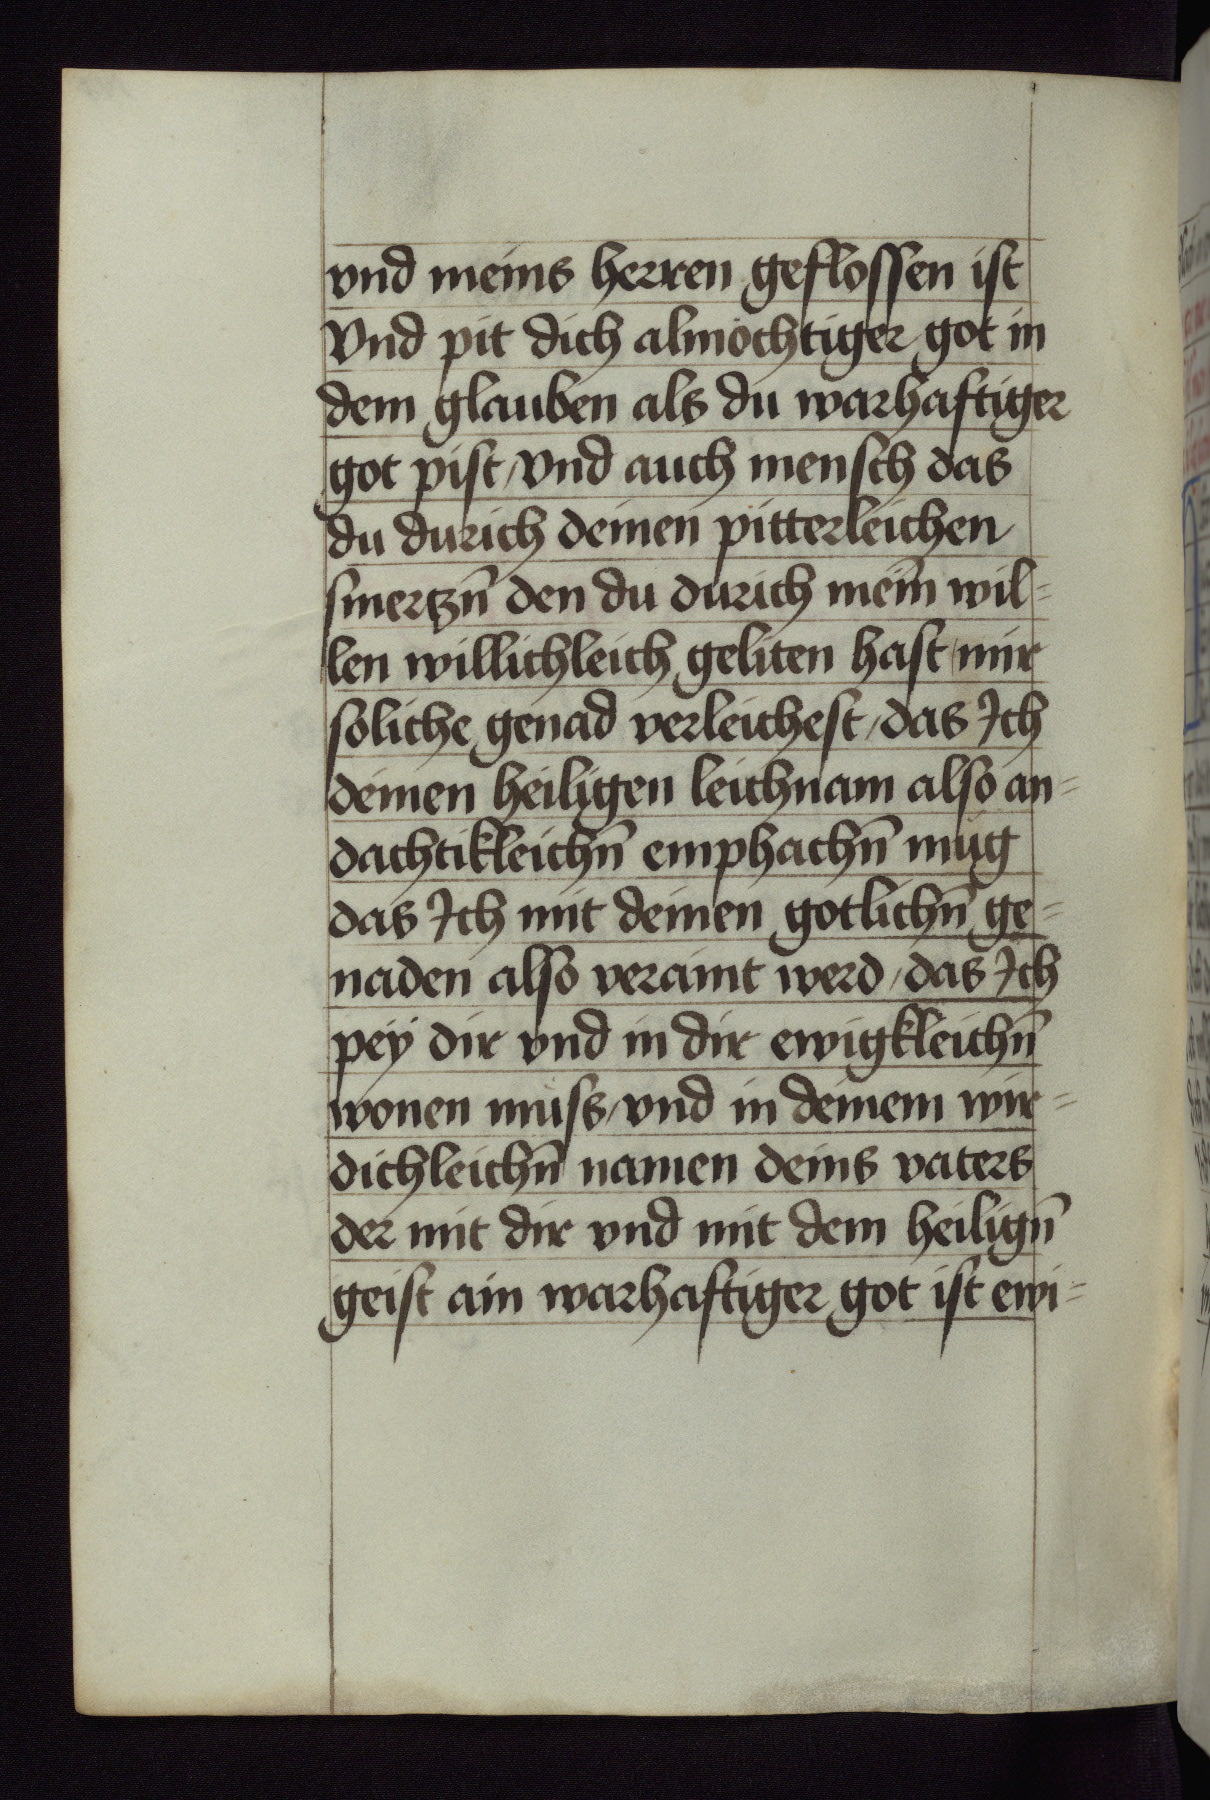 vnd meins herren geflossen ist
Vnd pit dich almöchtiger got in
dem glauben als du warhaftiger
got pist / vnd auch mensch das
du durich deinen pitterleichen
smertzn̄ den du durich mein̄ wil=
len willichleich geliten hast / mir
soliche genad verleichest / das Ich
deinen heiligen leichnam also an=
dachtikleichn̄ emphachn̄ müg
das Ich mit deinen gotlichn̄ ge=
naden also veraint werd / das Ich
peÿ dir vnd in dir ewigkleichn̄
wonen müss / vnd in deinem wir=
dichleichn̄ namen deins vaters
der mit dir vnd mit dem heilign̄
geist ain warhaftiger got ist ewi=